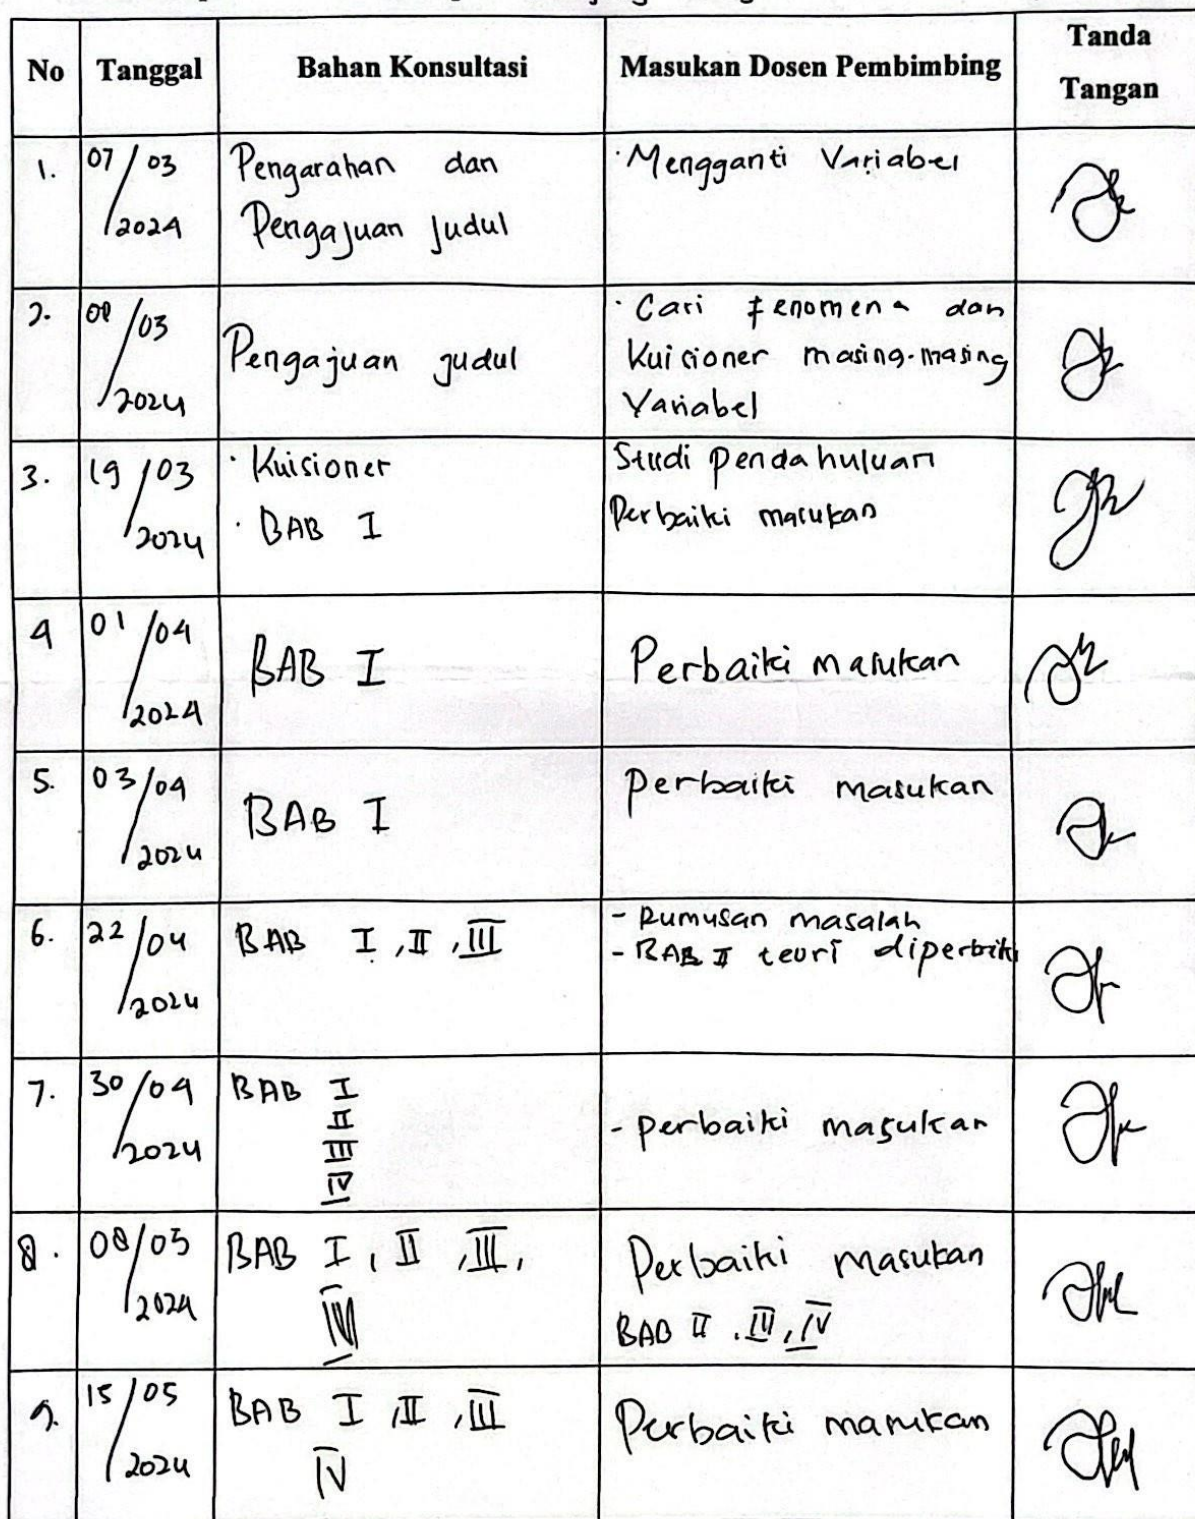 No Tanggal Bahan Konsultasi Masukan Dosen Pembimbing Tanda Tangan
1. 07/03/2024 Pengarahan dan Pengajuan Judul · Mengganti Variabel
2. 08/03/2024 Pengajuan judul · Cari fenomena dan Kuisioner masing-masing Variabel
3. 19/03/2024 · Kuisioner · BAB I Studi pendahuluan Perbaiki masukan
4 01/04/2024 BAB I Perbaiki masukan
5. 03/04/2024 BAB I Perbaiki masukan
6. 22/04/2024 BAB I, II, III - Rumusan masalah - BAB II teori diperbiki
7. 30/04/2024 BAB I II III IV - perbaiki masukan
8. 08/05/2024 BAB I, II, III, IV Perbaiki masukan BAB II, III, IV
9. 15/05/2024 BAB I, II, III IV Perbaiki masukan